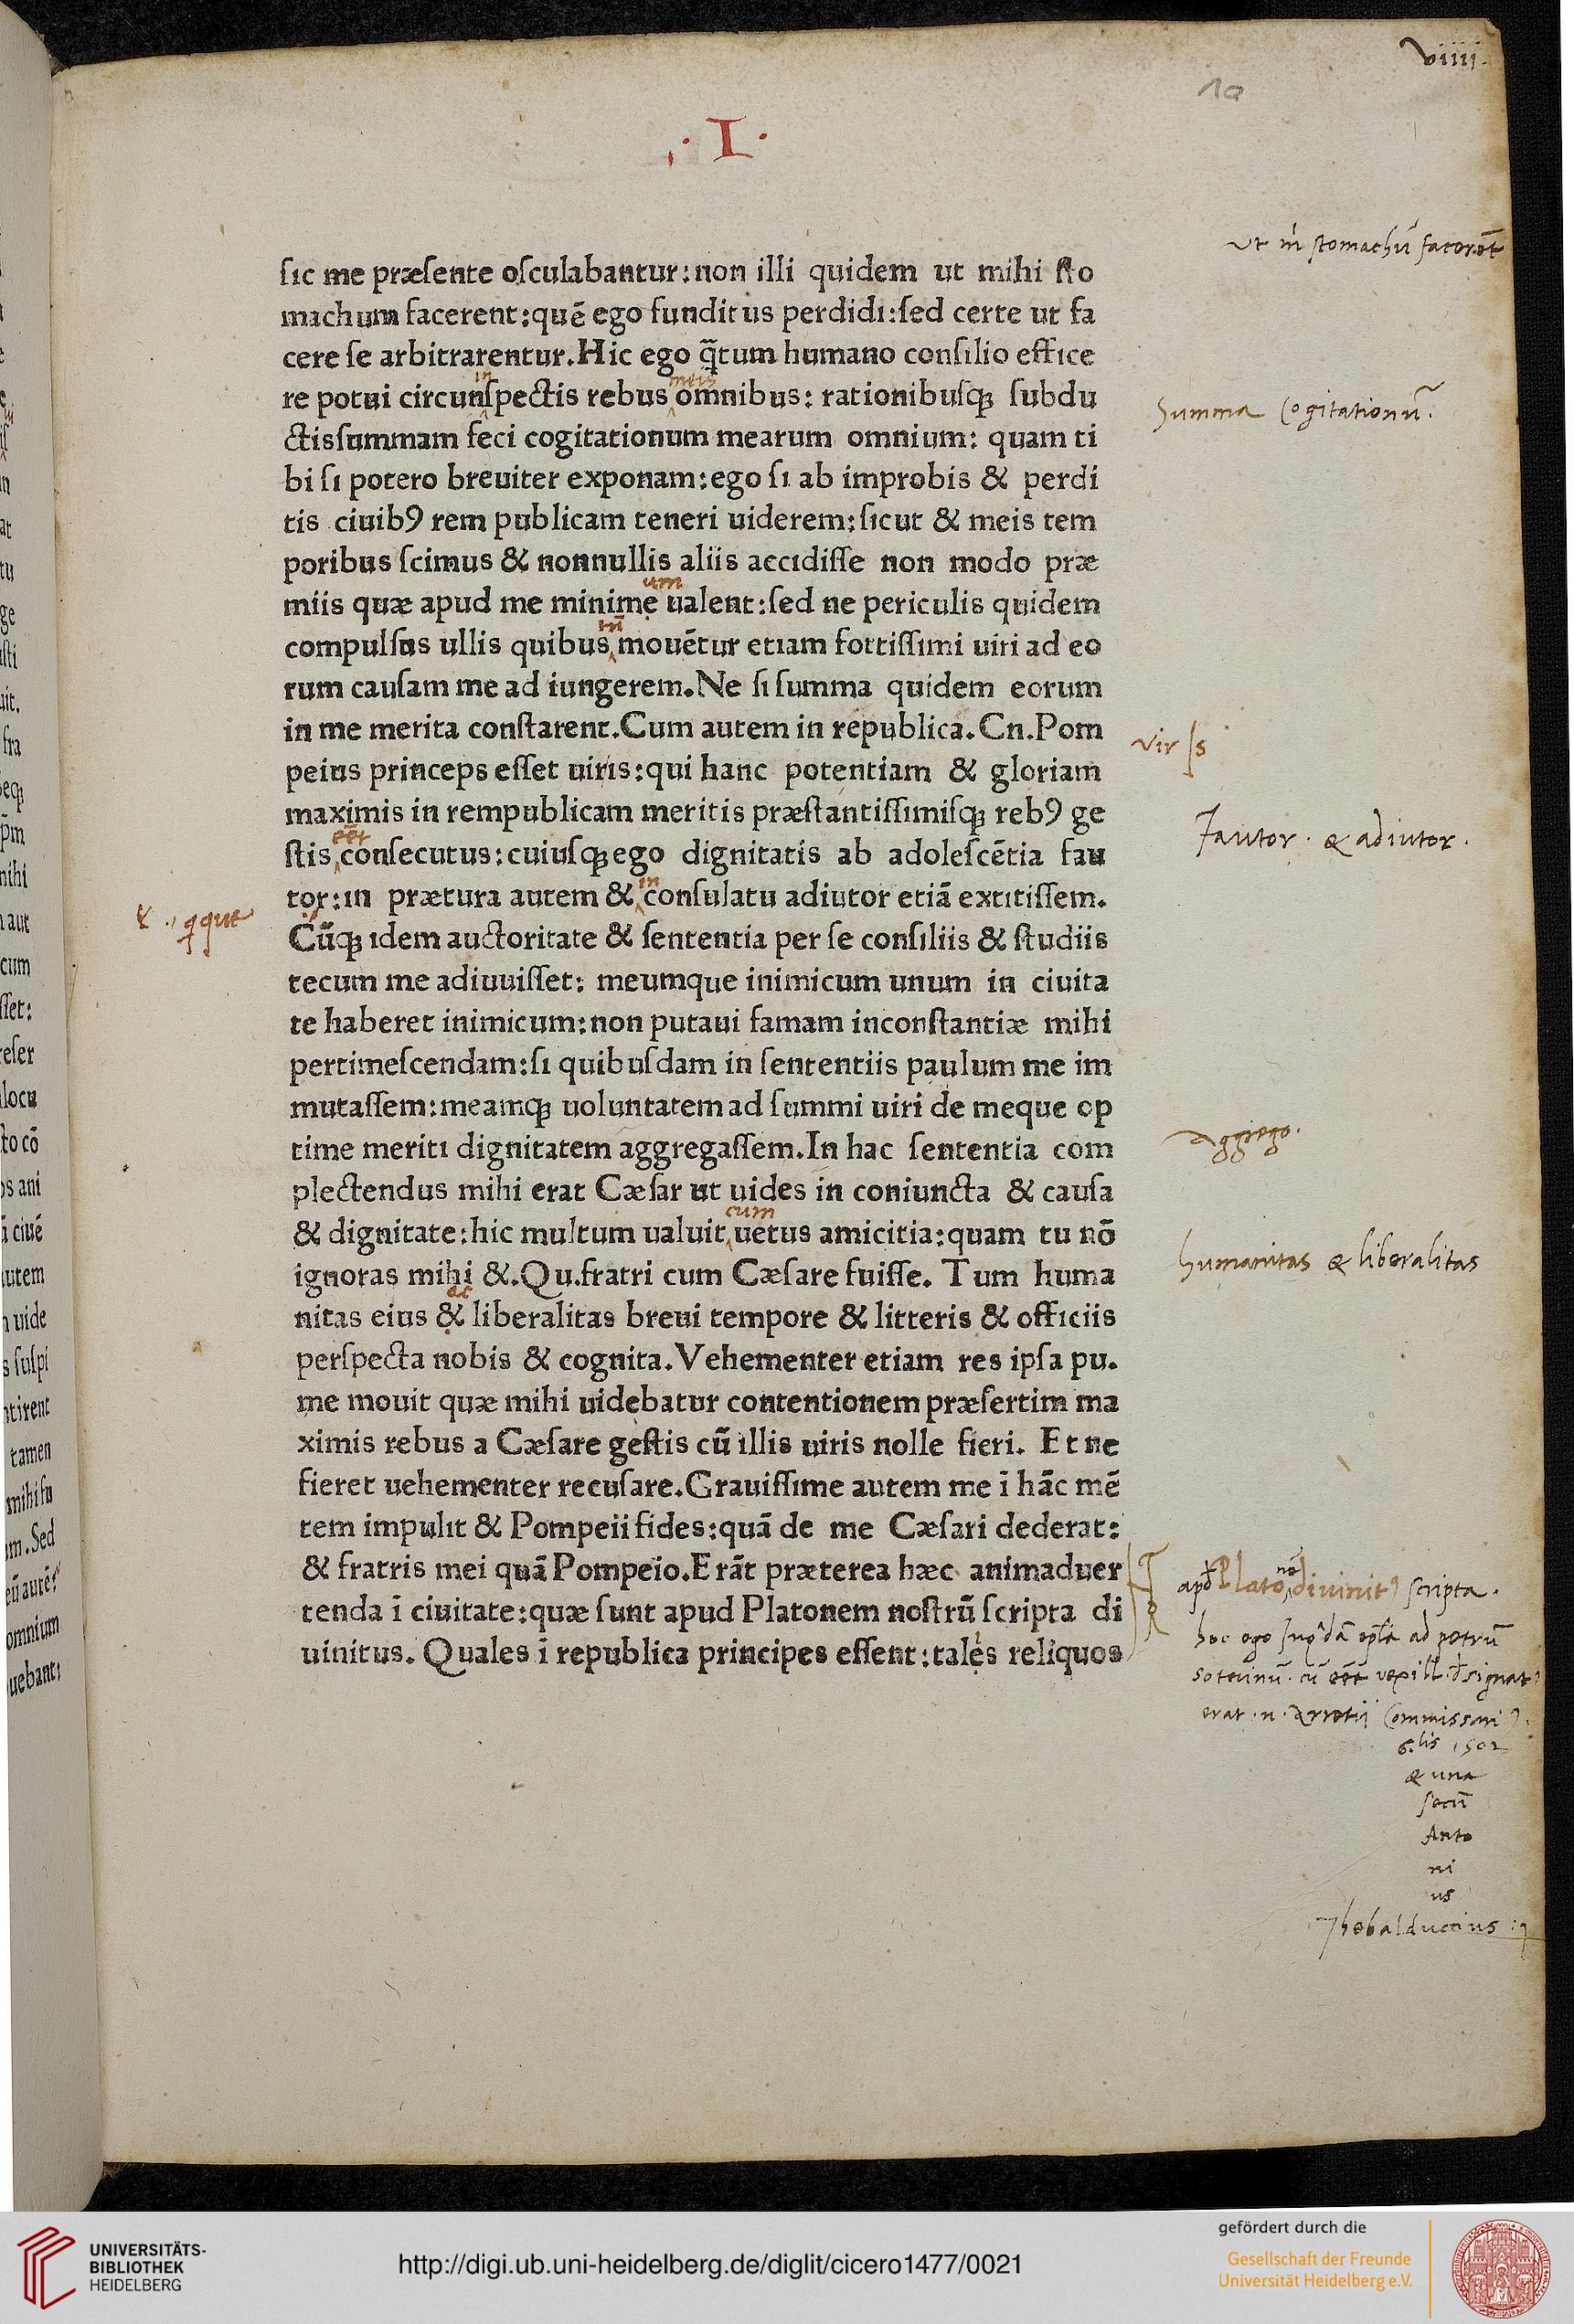 viiii.
10
. I .
ut m̄ stomachū facerēt
ſic me præſente oſculabantur: non illi quidem ut mihi ſto
machum facerent: quē ego funditus perdidi: ſed certe ut fa
cere ſe arbitrarentur. Hic ego q̄tum humano conſilio effice
in meis
re potui circunſpectis rebus omnibus: rationibuſq; ſubdu
Summa Cogitationū.
ctisſummam feci cogitationum mearum omnium: quam ti
bi ſi potero breuiter exponam: ego ſi ab improbis & perdi
tis ciuibꝰ rem publicam teneri uiderem: ſicut & meis tem
poribus ſcimus & nonnullis aliis accidiſſe non modo præ
um
miis quæ apud me minime ualent: ſed ne periculis quidem
m̄
compulſus ullis quibus mouētur etiam fortiſſimi uiri ad eo
rum cauſam me ad iungerem. Ne ſi ſumma quidem eorum
in me merita conſtarent. Cum autem in republica. Cn. Pom
vir ſs
peius princeps eſſet uiris: qui hanc potentiam & gloriam
maximis in rempublicam meritis præſtantiſſimiſq; rebꝰ ge
eēt
ſtis conſecutus: cuiuſq; ego dignitatis ab adoleſcētia fau
Fautor. & adiutor.
in
tor: in prætura autem & conſulatu adiutor etiā extitiſſem.
Cūq; idem auctoritate & ſententia per ſe conſiliis & ſtudiis
tecum me adiuuiſſet: meumque inimicum unum in ciuita
te haberet inimicum: non putaui famam inconſtantiæ mihi
pertimeſcendam: ſi quibuſdam in ſententiis paulum me im
mutaſſem: meamq; uoluntatem ad ſummi uiri de meque op
time meriti dignitatem aggregaſſem. In hac ſententia com
Aggrego.
plectendus mihi erat Cæſar ut uides in coniuncta & cauſa
cum
& dignitate: hic multum ualuit uetus amicitia: quam tu nō
ignoras mihi &. Qu. fratri cum Cæſare fuiſſe. Tum huma
humanitas & liberalitas
ac
nitas eius & liberalitas breui tempore & litteris & officiis
perſpecta nobis & cognita. Vehementer etiam res ipſa pu.
me mouit quæ mihi uidebatur contentionem præſertim ma
ximis rebus a Cæſare geſtis cū illis uiris nolle fieri. Et ne
fieret uehementer recuſare. Grauiſſime autem me ī hāc mē
tem impulit & Pompeii fides: quā de me Cæſari dederat:
& fratris mei quā Pompeio. Erāt præterea hæc animaduer
tenda ī ciuitate: quæ ſunt apud Platonem noſtrū ſcripta di
uinitus. Quales ī republica principes eſſent: tales reliquos
apđ Plato nō diuinitꝰ scripta.
erat. n. Arretii Commissariꝰ.
1502
& una
secū
Anto
ni
us
Thebalduccius
UNIVERSITÄTS-
BIBLIOTHEK
HEIDELBERG
http://digi.ub.uni-heidelberg.de/diglit/cicero1477/0021
gefördert durch die
Gesellschaft der Freunde
Universität Heidelberg e.V.